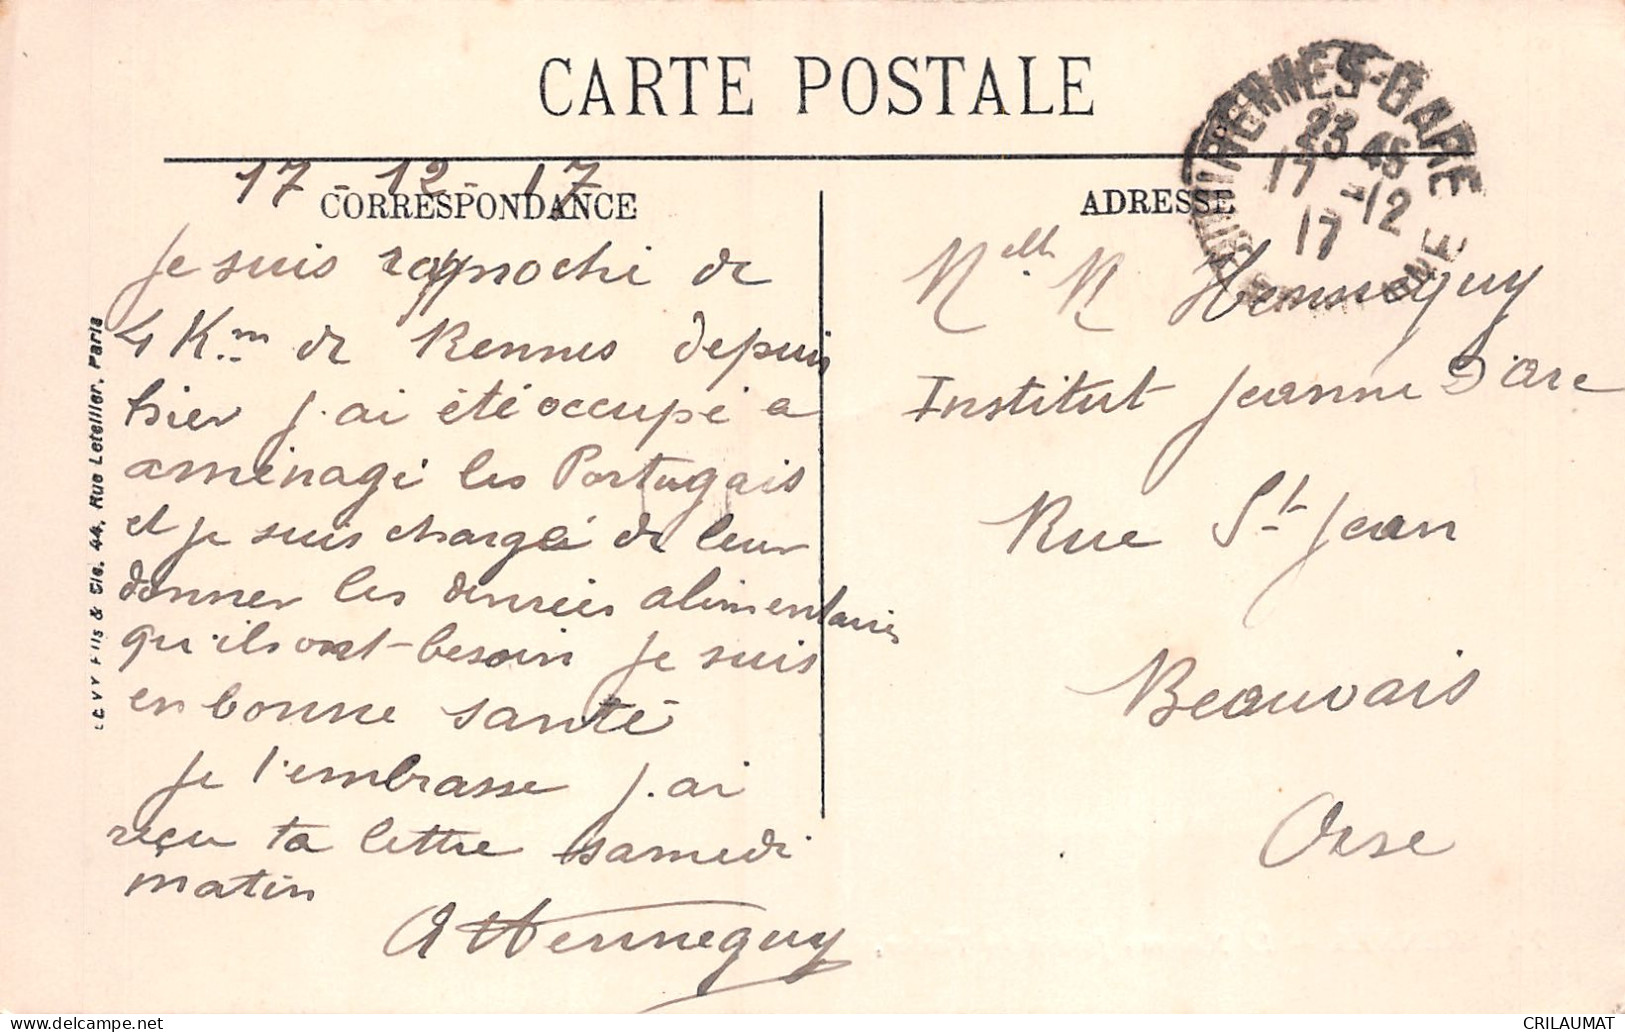 CARTE POSTALE
17-12-17
CORRESPONDANCE
Je suis rapproché de
4 Km de Rennes depuis
hier j'ai été occupé a
aménagé les Portugais
et je suis chargé de leur
donner les denrées alimentaires
qu'ils ont besoin je suis
en bonne santé
je t'embrasse j'ai
reçu ta lettre samedi
matin
A Hennequy
ADRESSE
RENNES-GARE
23 45
17 -12
17
Melle M Hennequy
Institut Jeanne D'arc
Rue St Jean
Beauvais
Oise
LEVY Fils & Cie, 44, Rue Letellier, Paris
CRILAUMAT